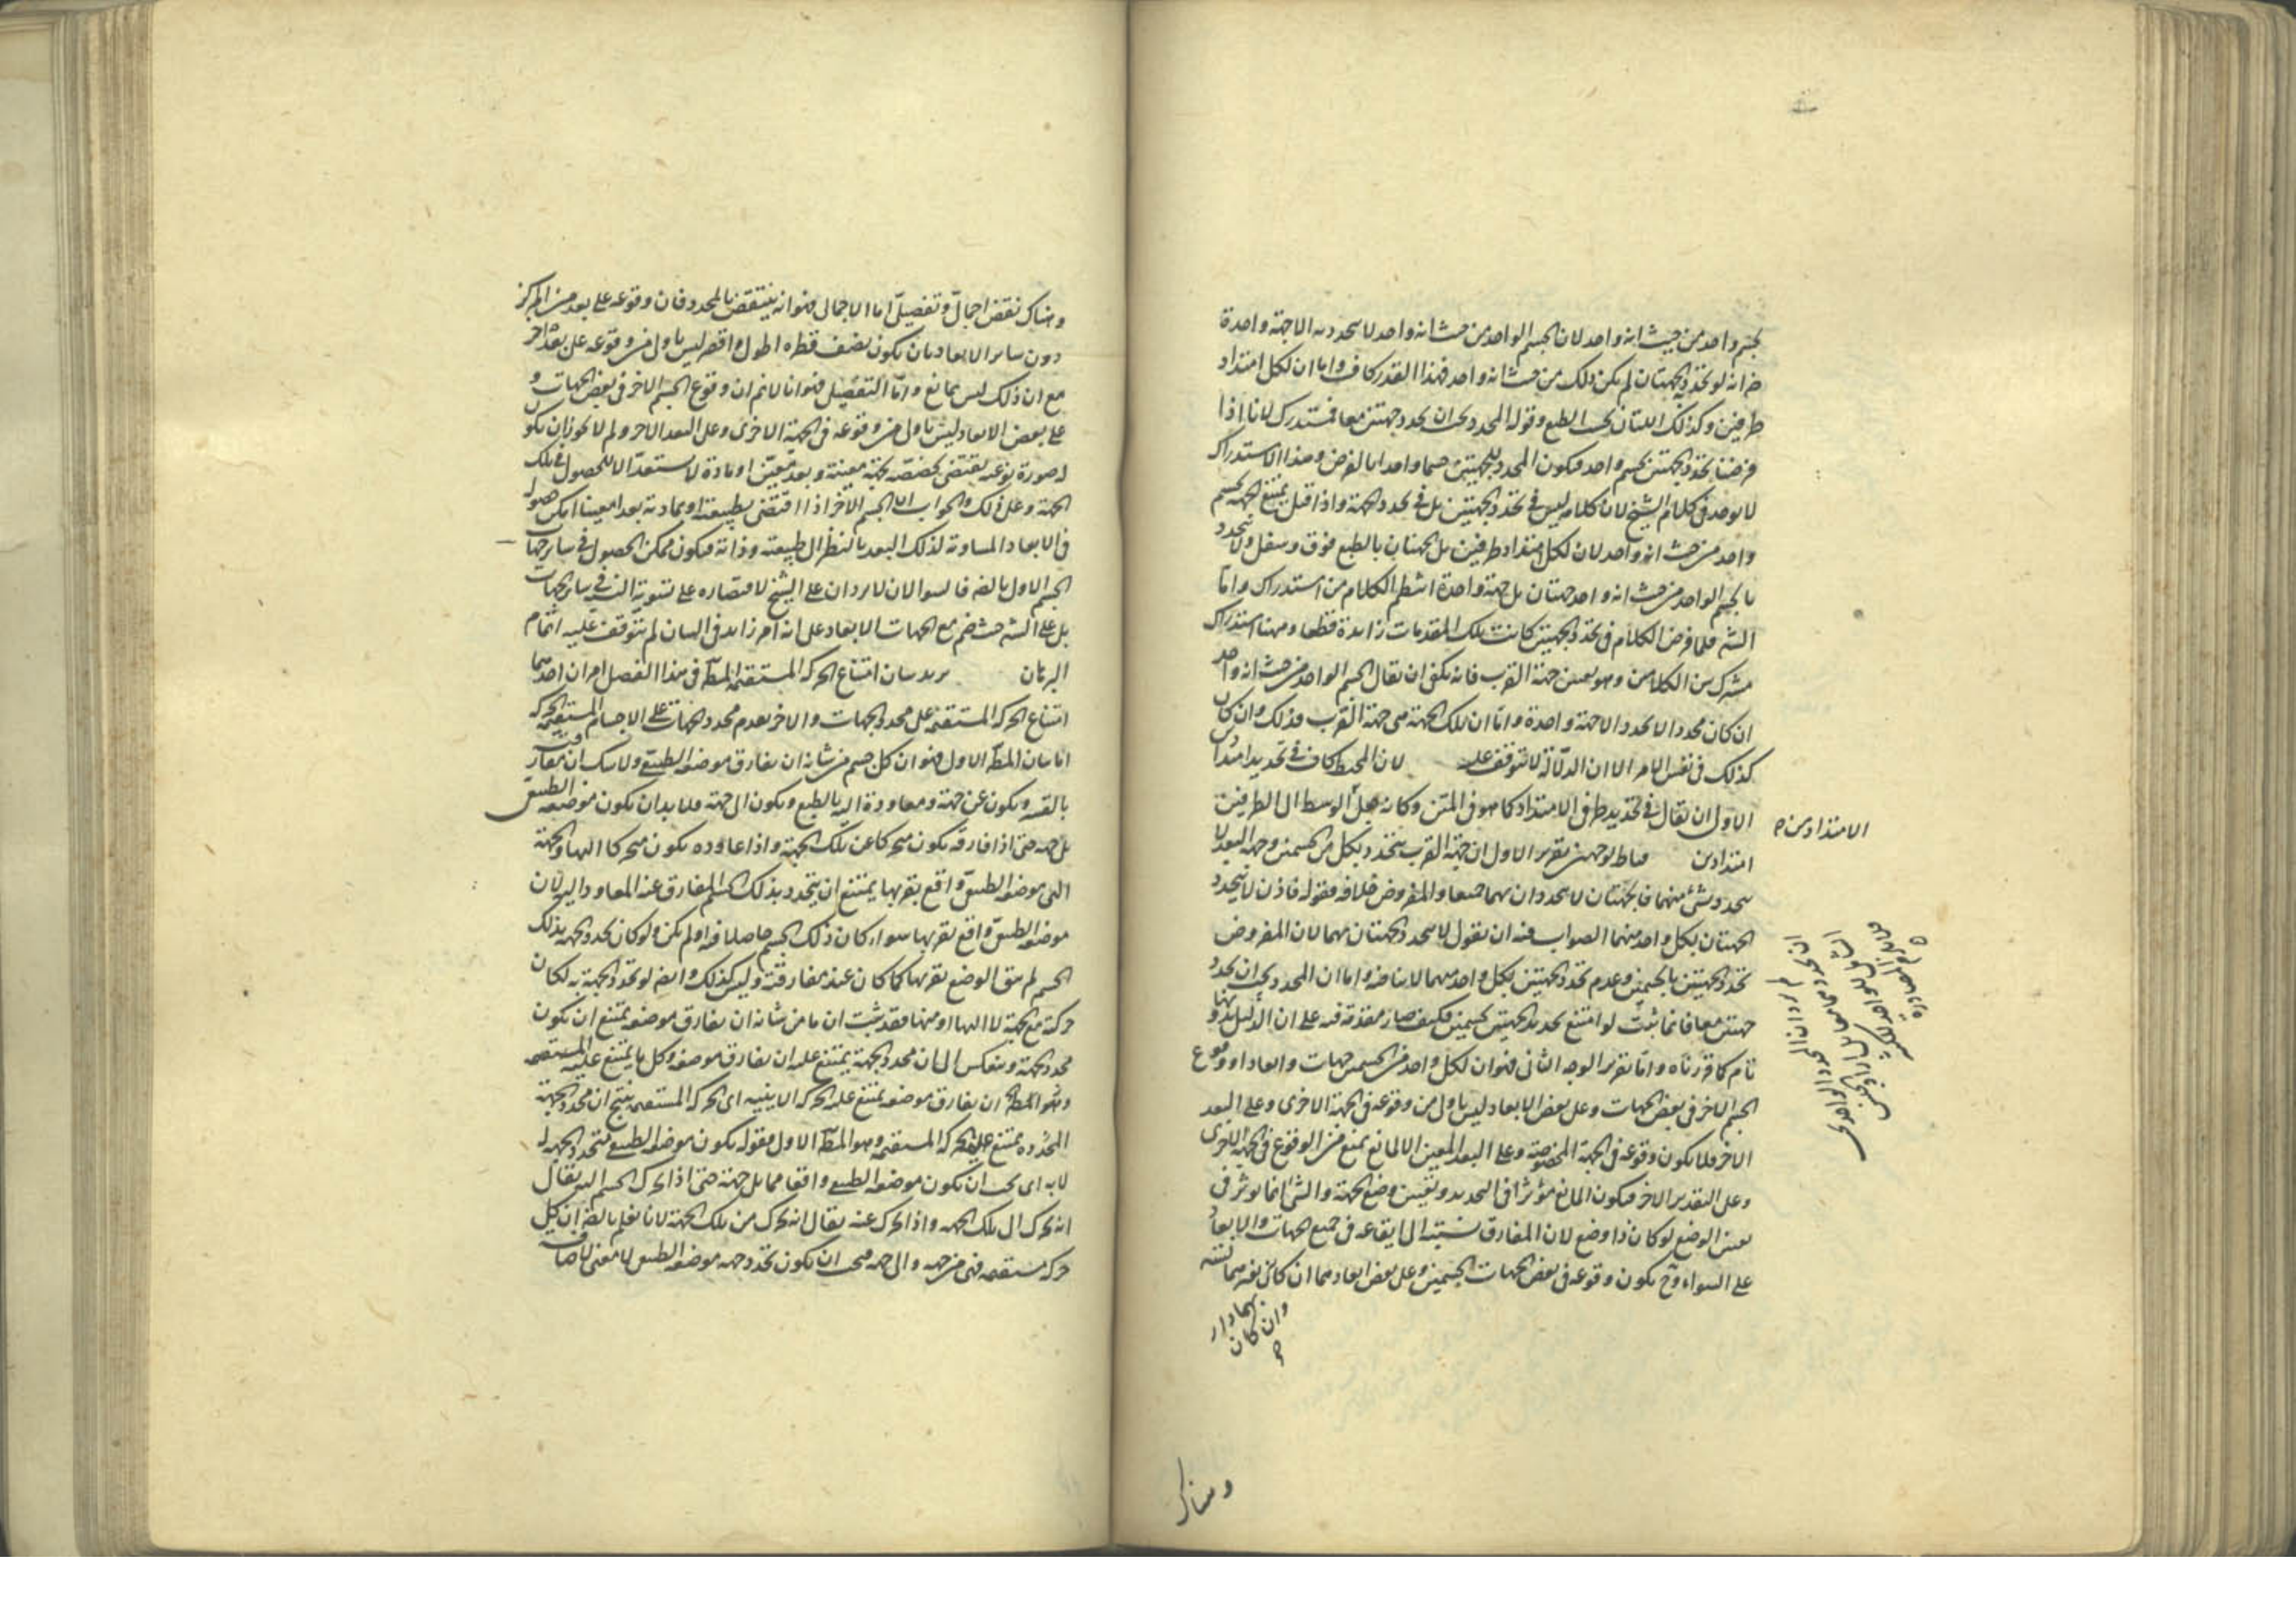 بجسم واحد من حيث انه واحد لان الجسم الواحد من حيث انه واحد لا يتحدد به الا جهة واحدة
انه لو تحدد به جهتان لم يكن ذلك من حيث انه واحد فهذا القدر كاف واما ان لكل امتداد
طرفين وكذلك اللتان بحسب الطبع وقوله المحدد يجب ان يحدد جهتين معا فمستدرك لانا اذا
فرضنا تحدد الجهتين بجسم واحد فيكون المحدد للجهتين جسما واحدا بالفرض وهذا الاستدراك
لا يوجد في كلام الشيخ لان كلامه ليس في تحدد الجهتين بل في تحدد الجهة واذا قيل يمتنع الجهة بجسم
واحد من حيث انه واحد لان لكل امتداد طرفين بل الجهتان بالطبع فوق وسفل ولا يتحدد
بالجسم الواحد من حيث انه واحد جهتان بل جهة واحدة انتظم الكلام من استدراك واما
الش فلما فرض الكلام في تحدد الجهتين كانت تلك المقدمات زايدة قطعا وههنا استدراك
مشترك بين الكلامين وهو تعيين جهة القرب فانه يكفي ان يقال الجسم الواحد من حيث انه واحد
ان كان محددا لا يحدد الا جهة واحدة واما ان تلك الجهة هي جهة القرب فذلك وان كان
كذلك في نفس الامر الا ان الدلالة لا تتوقف عليه لان المحيط كاف في تحديد امتداد
الاول ان يقال في تحديد طرفى الامتداد كما هو في المتن وكانه جعل الوسط الى الطرفين
الامتدادين
امتدادين فباطل لوجهين تقرير الاول ان جهة القرب يتحدد بكل من الجسمين وجهة البعد لا
يتحدد بشئ منهما فالجهتان لا يتحددان بهما جميعا والمفروض خلافه فقوله فاذن لا يتحدد
الجهتان بكل واحد منهما الصواب فيه ان يقول لا يتحدد الجهتان بهما لان المفروض
تحدد الجهتين بالجسمين وعدم تحدد الجهتين بكل واحد منهما لا يناقضه واما ان المحدد يجب ان يحدد
جهتين معا فانما يثبت لو امتنع تحديد الجهتين بجسمين فكيف صار مقدمة فيه على ان الدليل
تام كما قررناه واما تقرير الوجه الثاني فهو ان لكل واحد من الجسمين جهات وابعادا ووقوع
الجسم الاخر في بعض الجهات وعلى بعض الابعاد ليس باولى من وقوعه في الجهة الاخرى وعلى البعد
الاخر فلا يكون وقوعه في الجهة المخصوصة وعلى البعد المعين الا لمانع يمنع من الوقوع في الجهة الاخرى
وعلى التقدير الاخر فيكون المانع مؤثرا في التحديد وتعيين وضع الجهة والشئ انما يوثر في
تعيين الوضع لو كان ذا وضع لان المفارق نسبته الى ايقاعه في جميع الجهات والابعاد
على السواء وح يكون وقوعه في بعض الجهات الجسمين وعلى بعض ابعادهما ان كان
وان كان
وهناك
وهناك نقض اجمالى وتفصيلى اما الاجمالى فهو انه ينتقض بالمحدد فان وقوعه على بعد من المركز
دون ساير الابعاد بان يكون نصف قطره اطول او اقصر ليس باولى من وقوعه على بعد اخر
مع ان ذلك ليس بمانع واما التفصيل فهو انا لا نم ان وقوع الجسم الاخر في بعض الجهات و
على بعض الابعاد ليس باولى من وقوعه في الجهة الاخرى وعلى البعد الاخر ولم لا يجوز ان يكون
له صورة نوعية يقتضى تخصصه بجهة معينة وبعد معين او مادة لا يستعد الا للحصول في تلك
الجهة وعلى ذلك والجواب ان الجسم الاخر اذا اقتضى بطبيعته او بمادته بعدا معينا امكن حصوله
في الابعاد المساوية لذلك البعد بالنظر الى طبيعته وذاته فيكون ممكن الحصول في ساير جهات
الجسم الاول بالض فالسوالان لا يردان على الشيخ لاقتصاره على تسوية النسبة في ساير الجهات
بل على الش حيث ضم مع الجهات الابعاد على انه امر زايد في البيان لم يتوقف عليه اتمام
البرهان يريد بيان امتناع الحركة المستقيمة المط في هذا الفصل امران احدهما
امتناع الحركة المستقيمة على محدد الجهات والاخر تقدم محدد الجهات على الاجسام المستقيمة الحركة
اما بيان المط الاول فهو ان كل جسم من شانه ان يفارق موضعه الطبيعى ولا شك ان مفارقته
بالقسر ويكون عن جهة ومعاودة اليه بالطبع ويكون الى جهة فلا بد ان يكون موضعه الطبيعى
بل جهة حتى اذا فارقه يكون متحركا عن تلك الجهة واذا عاوده يكون متحركا اليها والجهة
التى موضعه الطبيعى واقع بقربها يمتنع ان يتحدد بذلك الجسم المفارق عنه المعاود اليه لان
موضعه الطبيعى واقع بقربها سواء كان ذلك الجسم حاصلا فيه او لم يكن ولو كان تحدد الجهة بذلك
الجسم لم يبق الوضع بقربها كما كان عند مفارقته وليس كذلك وايضا لو تحدد الجهة به لكان
حركته مع الجهة لا اليها او منها فقد ثبت ان ما من شانه ان يفارق موضعه يمتنع ان يكون
محدد الجهة وينعكس الى ان محدد الجهة يمتنع عليه ان يفارق موضعه وكل ما يمتنع عليه
ان يفارق موضعه يمتنع عليه الحركة الاينية اى الحركة المستقيمة ينتج ان محدد الجهة
المحدد يمتنع عليه الحركة المستقيمة وهو المط الاول فقوله يكون موضعه الطبيعى متحدد الجهة له
لا به اى يجب ان يكون موضعه الطبيعى واقعا مما يلى جهة حتى اذا تحرك الجسم اليه يقال
انه تحرك الى تلك الجهة واذا تحرك عنه يقال انه تحرك من تلك الجهة لانا نعلم بالض ان كل
حركة مستقيمة فهى من جهة والى جهة فيجب ان يكون تحدد جهة موضعه الطبيعى